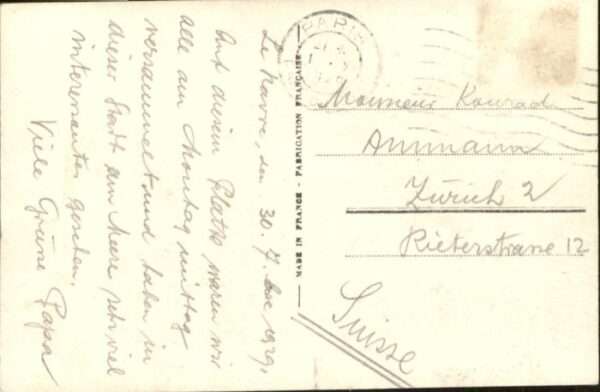 Le Havre, den 30. 7. 1929.
Auf diesem Platze waren wir
alle am Montag mittag
versammelt und haben in
dieser Stadt am Meere sehr viel
interessantes gesehen.
Viele Grüsse Papa
MADE IN FRANCE - FABRICATION FRANÇAISE
PARIS
Monsieur Konrad
Ammann
Zürich 2
Rieterstrasse 12
Suisse